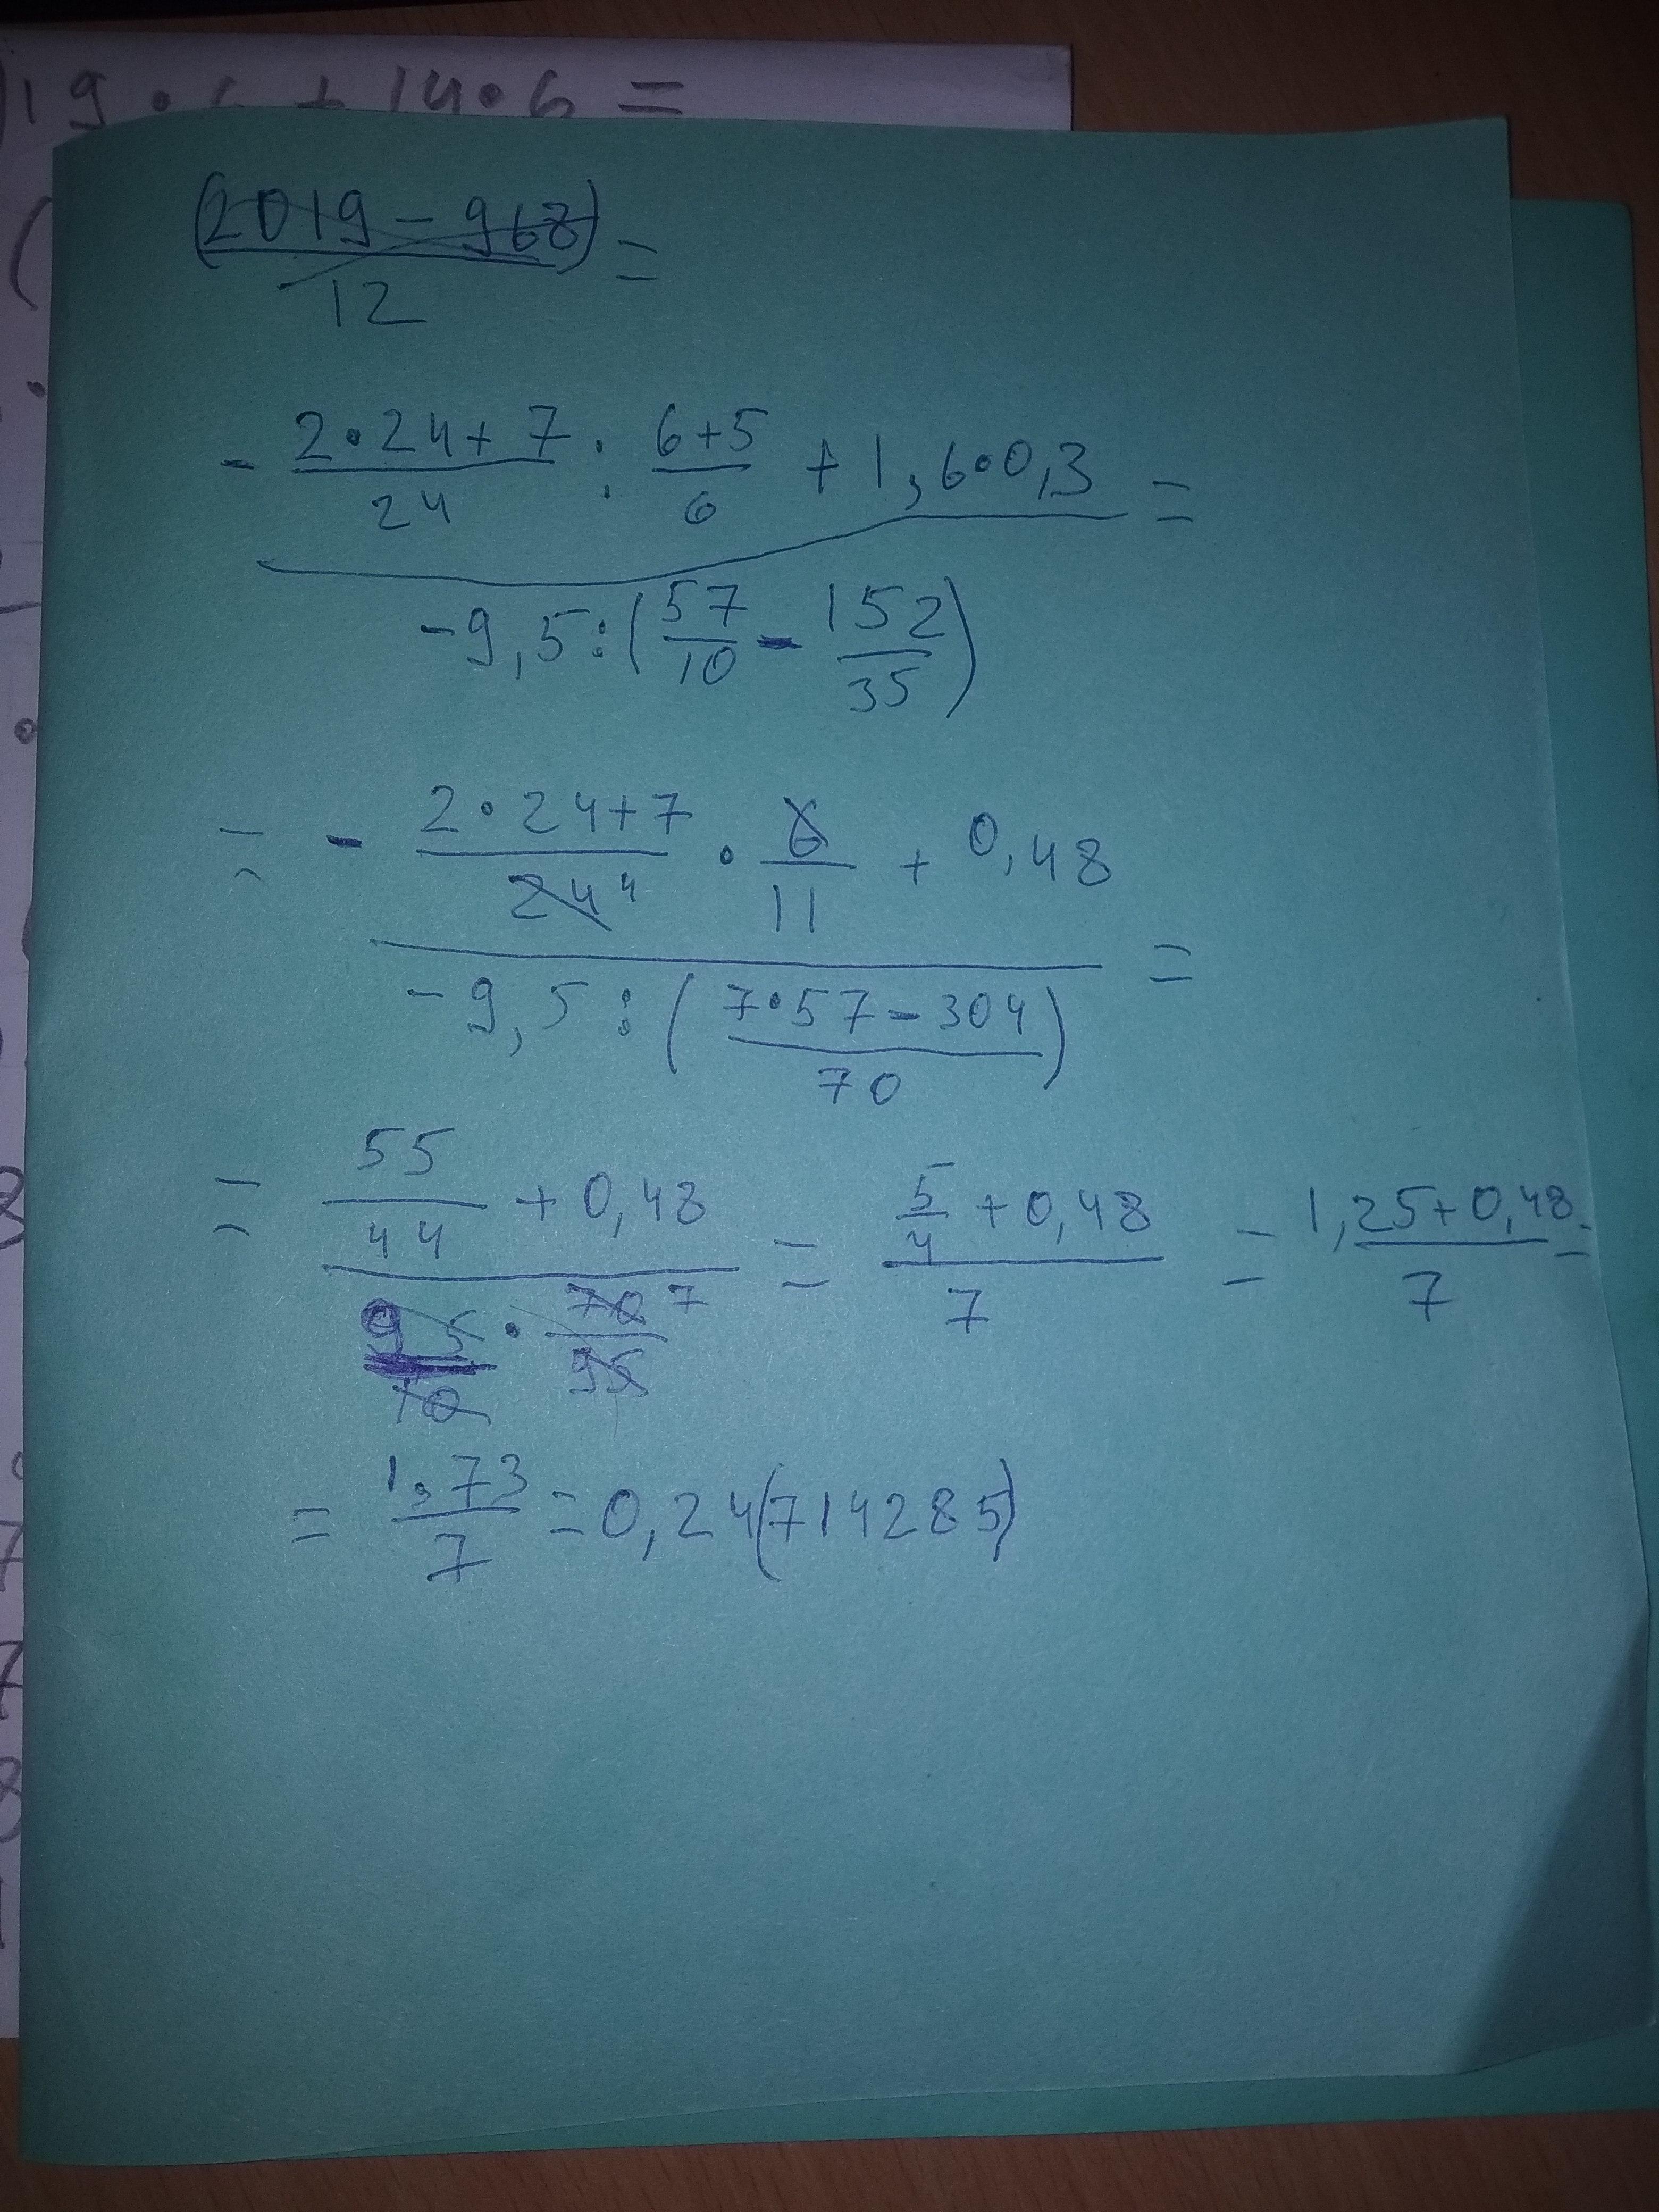 19 · 6 + 14 · 6 =
(2019 - 968)/12 =
- (2·24+7)/24 : (6+5)/6 + 1,6·0,3 =
-9,5 : (57/10 - 152/35)
= - (2·24+7)/24 4 · 6/11 + 0,48 =
-9,5 : ((7·57-304)/70)
= 55/44 + 0,48 = 5/4 + 0,48 = 1,25+0,48 =
95/10 · 70 7/95 7 7
= 1,73/7 = 0,24(714285)